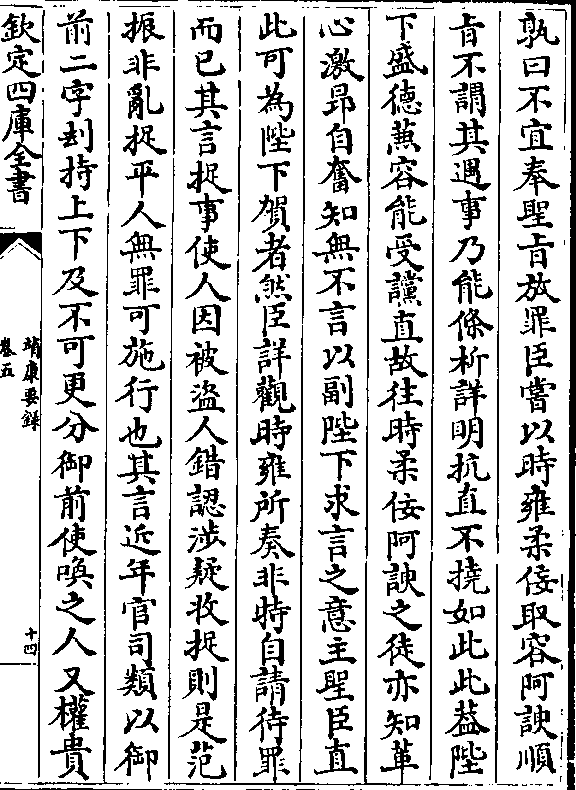 孰曰不宜奉聖㫖放罪臣嘗以時雍柔佞取容阿諛順
㫖不謂其遇事乃能條析詳明抗直不撓如此此葢陛
下盛德蒹容能受讜直故往時柔佞阿諛之徒亦知革
心激昻自奮知無不言以副陛下求言之意主聖臣直
此可為陛下賀者然臣詳觀時雍所奏非特自請待罪
而已其言捉事使人因被盜人錯認涉疑收捉則是范
振非亂捉平人無罪可施行也其言近年官司類以御
前二字刦持上下及不可更分御前使喚之人又權貴
欽定四庫全書
靖康要錄
卷五
十四